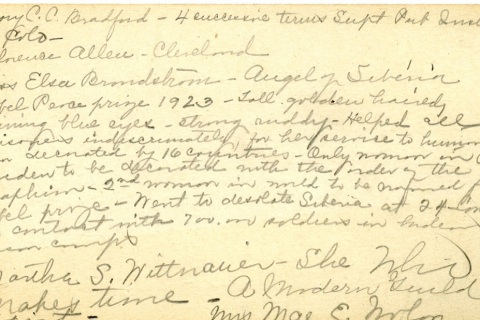 ary C. C. Bradford - 4 successive terms Supt Pub Inst
Colo -
lorence Allen - Cleveland
iss Elsa Brandstrom - Angel of Siberia
bel Peace prize 1923 - Tall golden haired
ning blue eyes - strong ruddy - Helped all
isoners indiscriminately for her service to human
n decorated by 16 countries - Only woman in
eden to be decorated with the order of the
aphim - 2nd woman in world to be named f
bel prize - Went to desolate Siberia at 24 -
contact with 700.000 soldiers in
son camps
artha S. Wittnauer - She Who
makes time - A Modern Guild
Mrs Mae E. Nolan